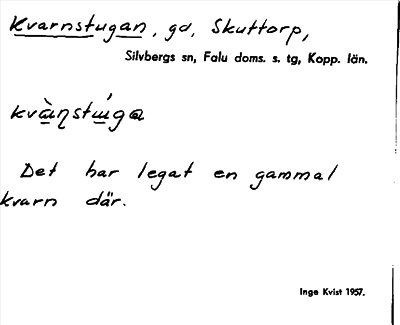 Kvarnstugan, gd, Skuttorp,
Silvbergs sn, Falu doms. s. tg, Kopp. län.
kvàɳstúga
Det har legat en gammal
kvarn där.
Inge Kvist 1957.